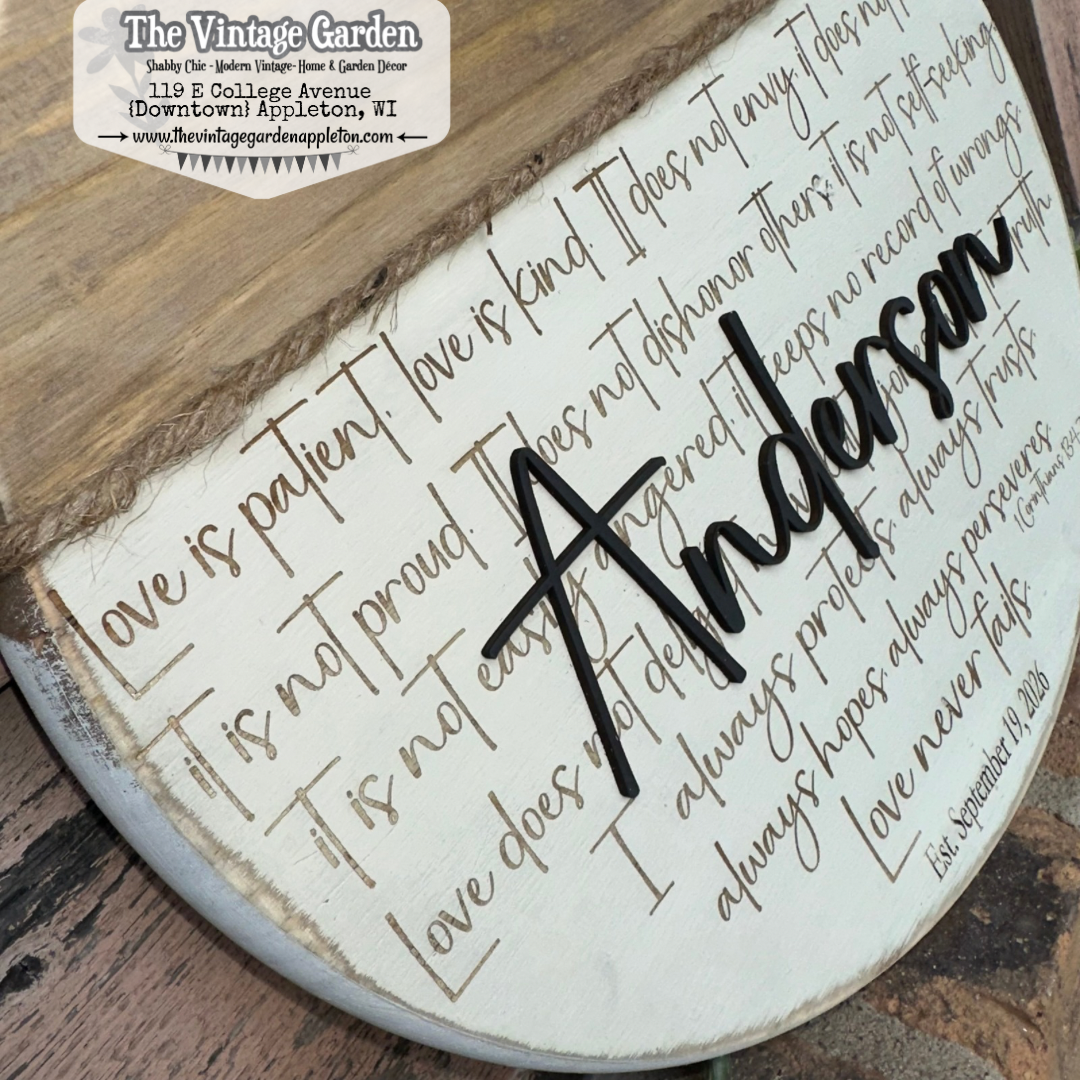 The Vintage Garden
Shabby Chic - Modern Vintage- Home & Garden Décor
119 E College Avenue
{Downtown} Appleton, WI
www.thevintagegardenappleton.com
Love is patient, love is kind. It does not envy, it does not
it is not proud. It does not dishonor others, it is not self-seeking,
it is not easily angered, it keeps no record of wrongs.
Love does not delight truth.
I always protects, always trusts,
always hopes, always perseveres.
1 Corinthians 13:4-7
Love never fails.
Est. September 19, 2026
Anderson